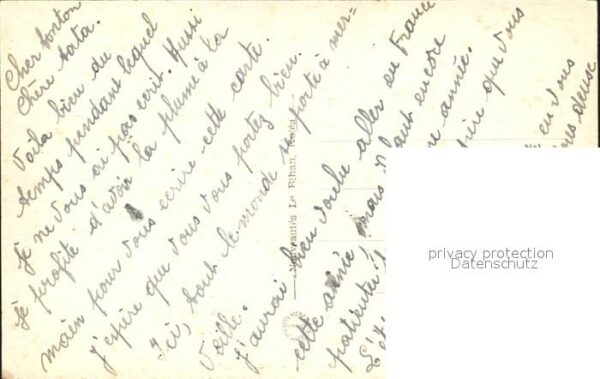 Cher tonton
Chère tata.
Voila bien du
temps pendant lequel
je ne vous ai pas ecrit. Aussi
je profite d'avoir la plume à la
main pour vous ecrire cette carte.
J'espère que vous vous portez bien.
Ici, tout le monde se porte à mer-
veille.
J'aurai bien voulu aller en France
cette année, mais il faut encore
patienter ne année.
L'é que vous
en vous
ous deuse
Nouveautés Le Bihan,
privacy protection
Datenschutz